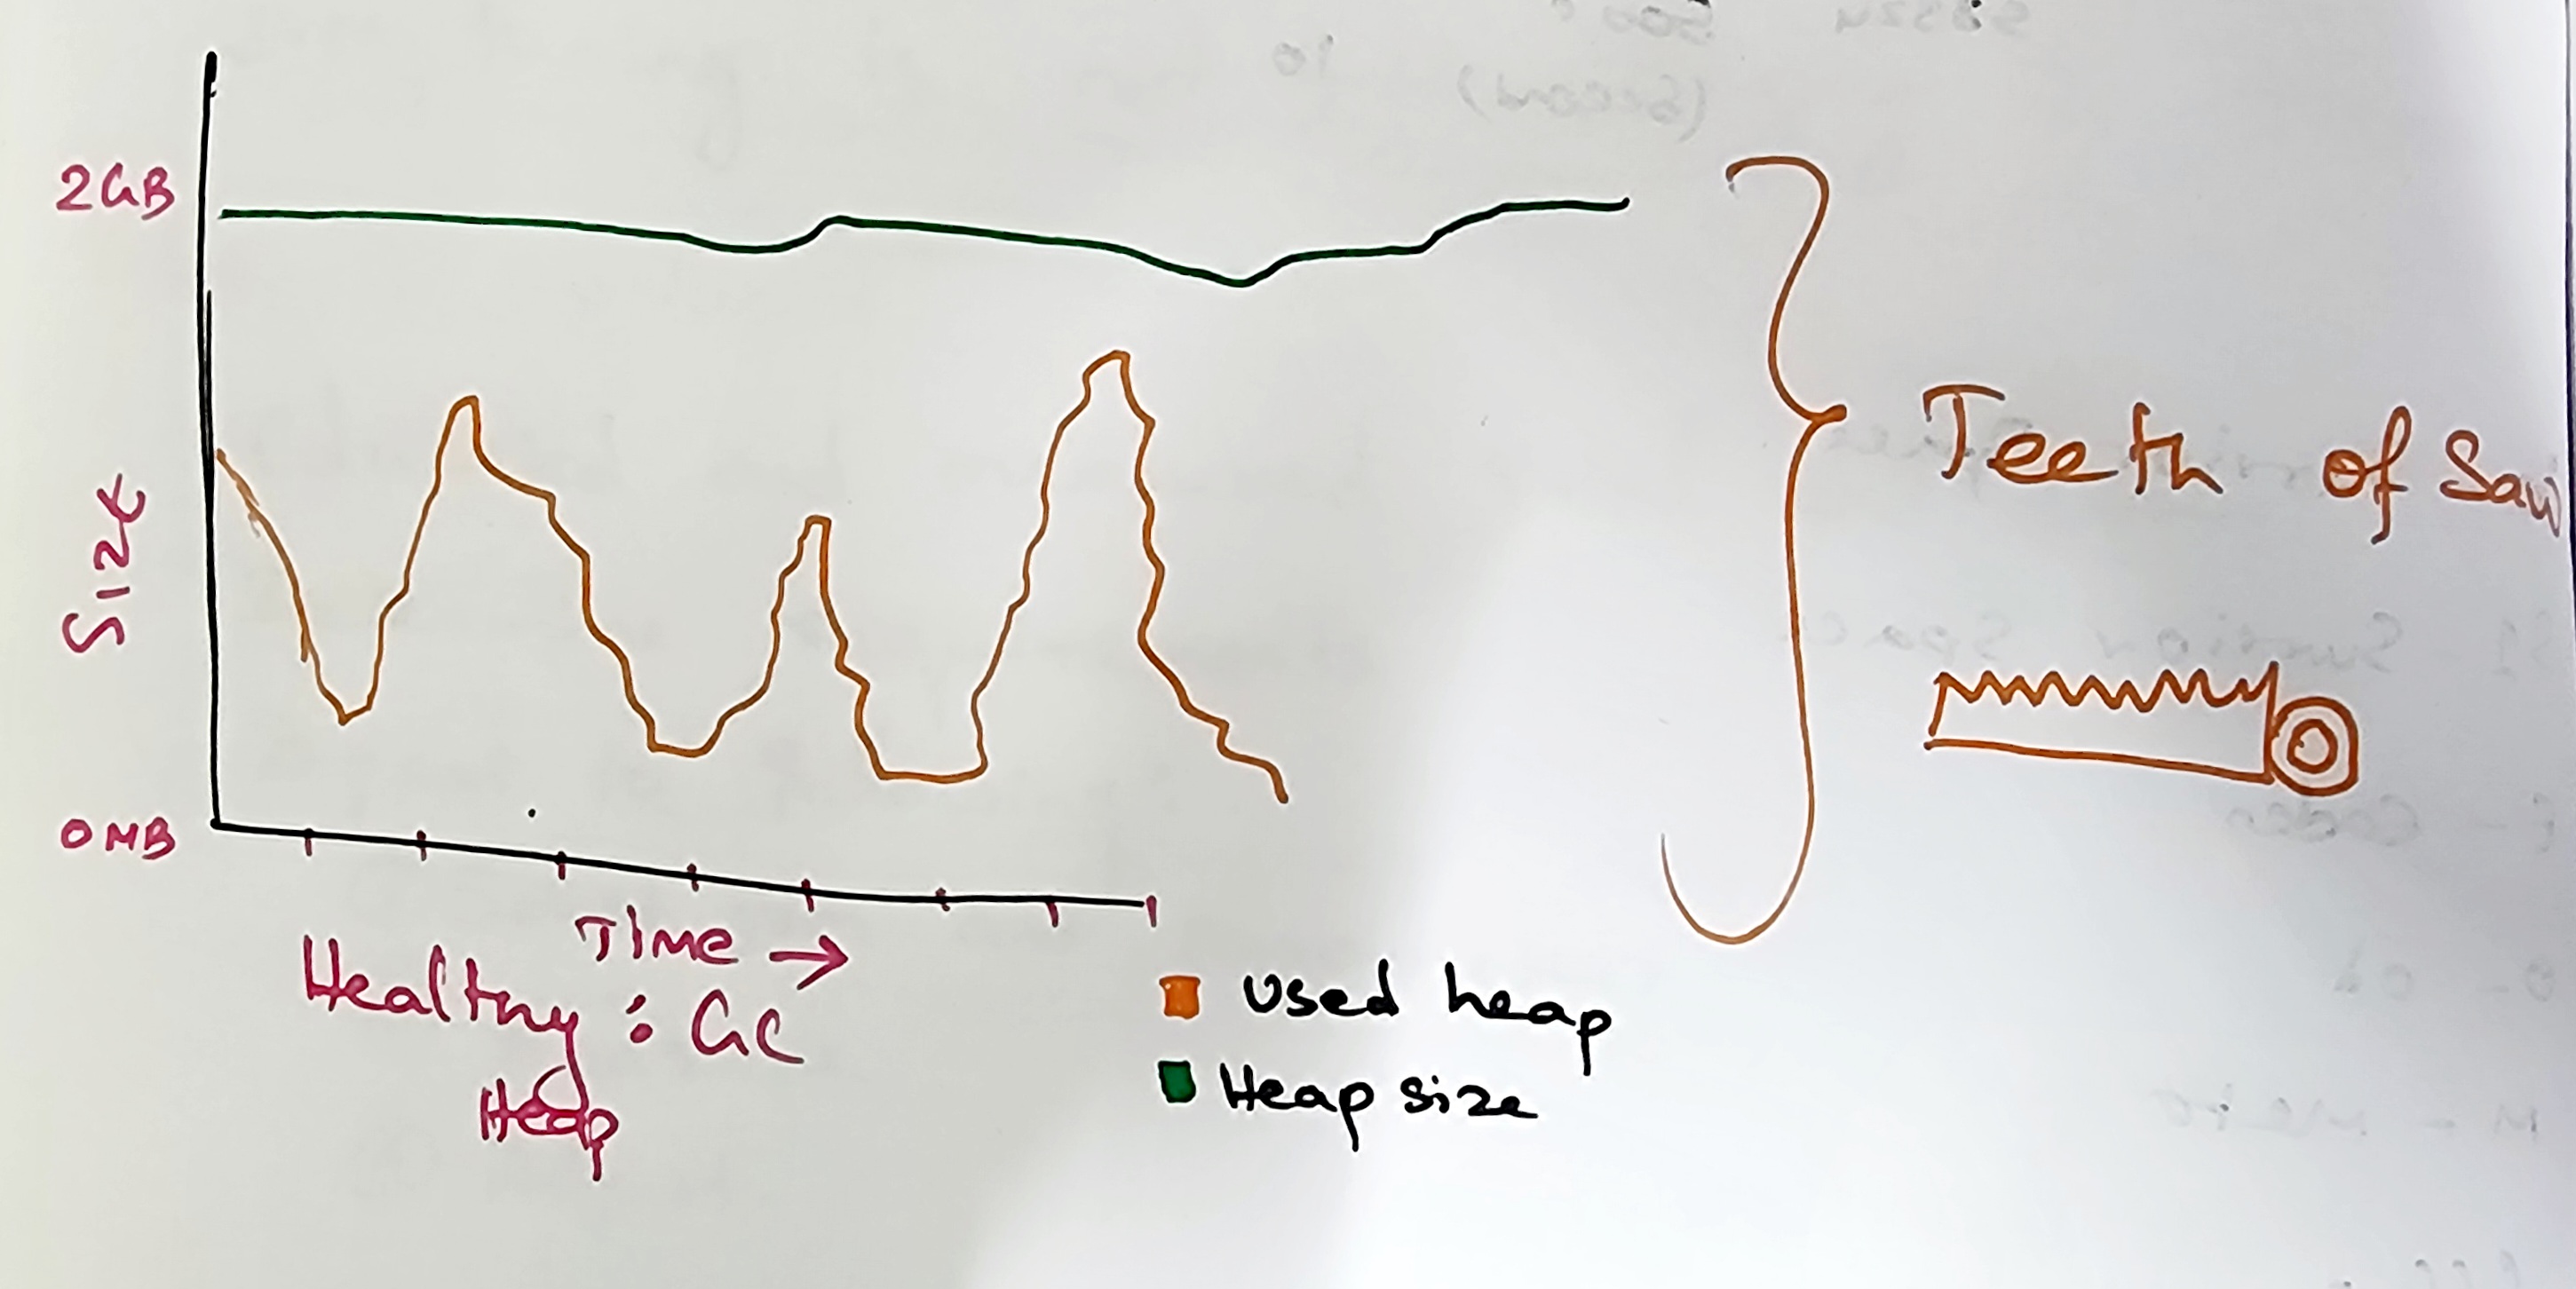 2GB
Size
0 MB
Time →
Healthy : GC
Heap
Used heap
Heap size
Teeth of Saw